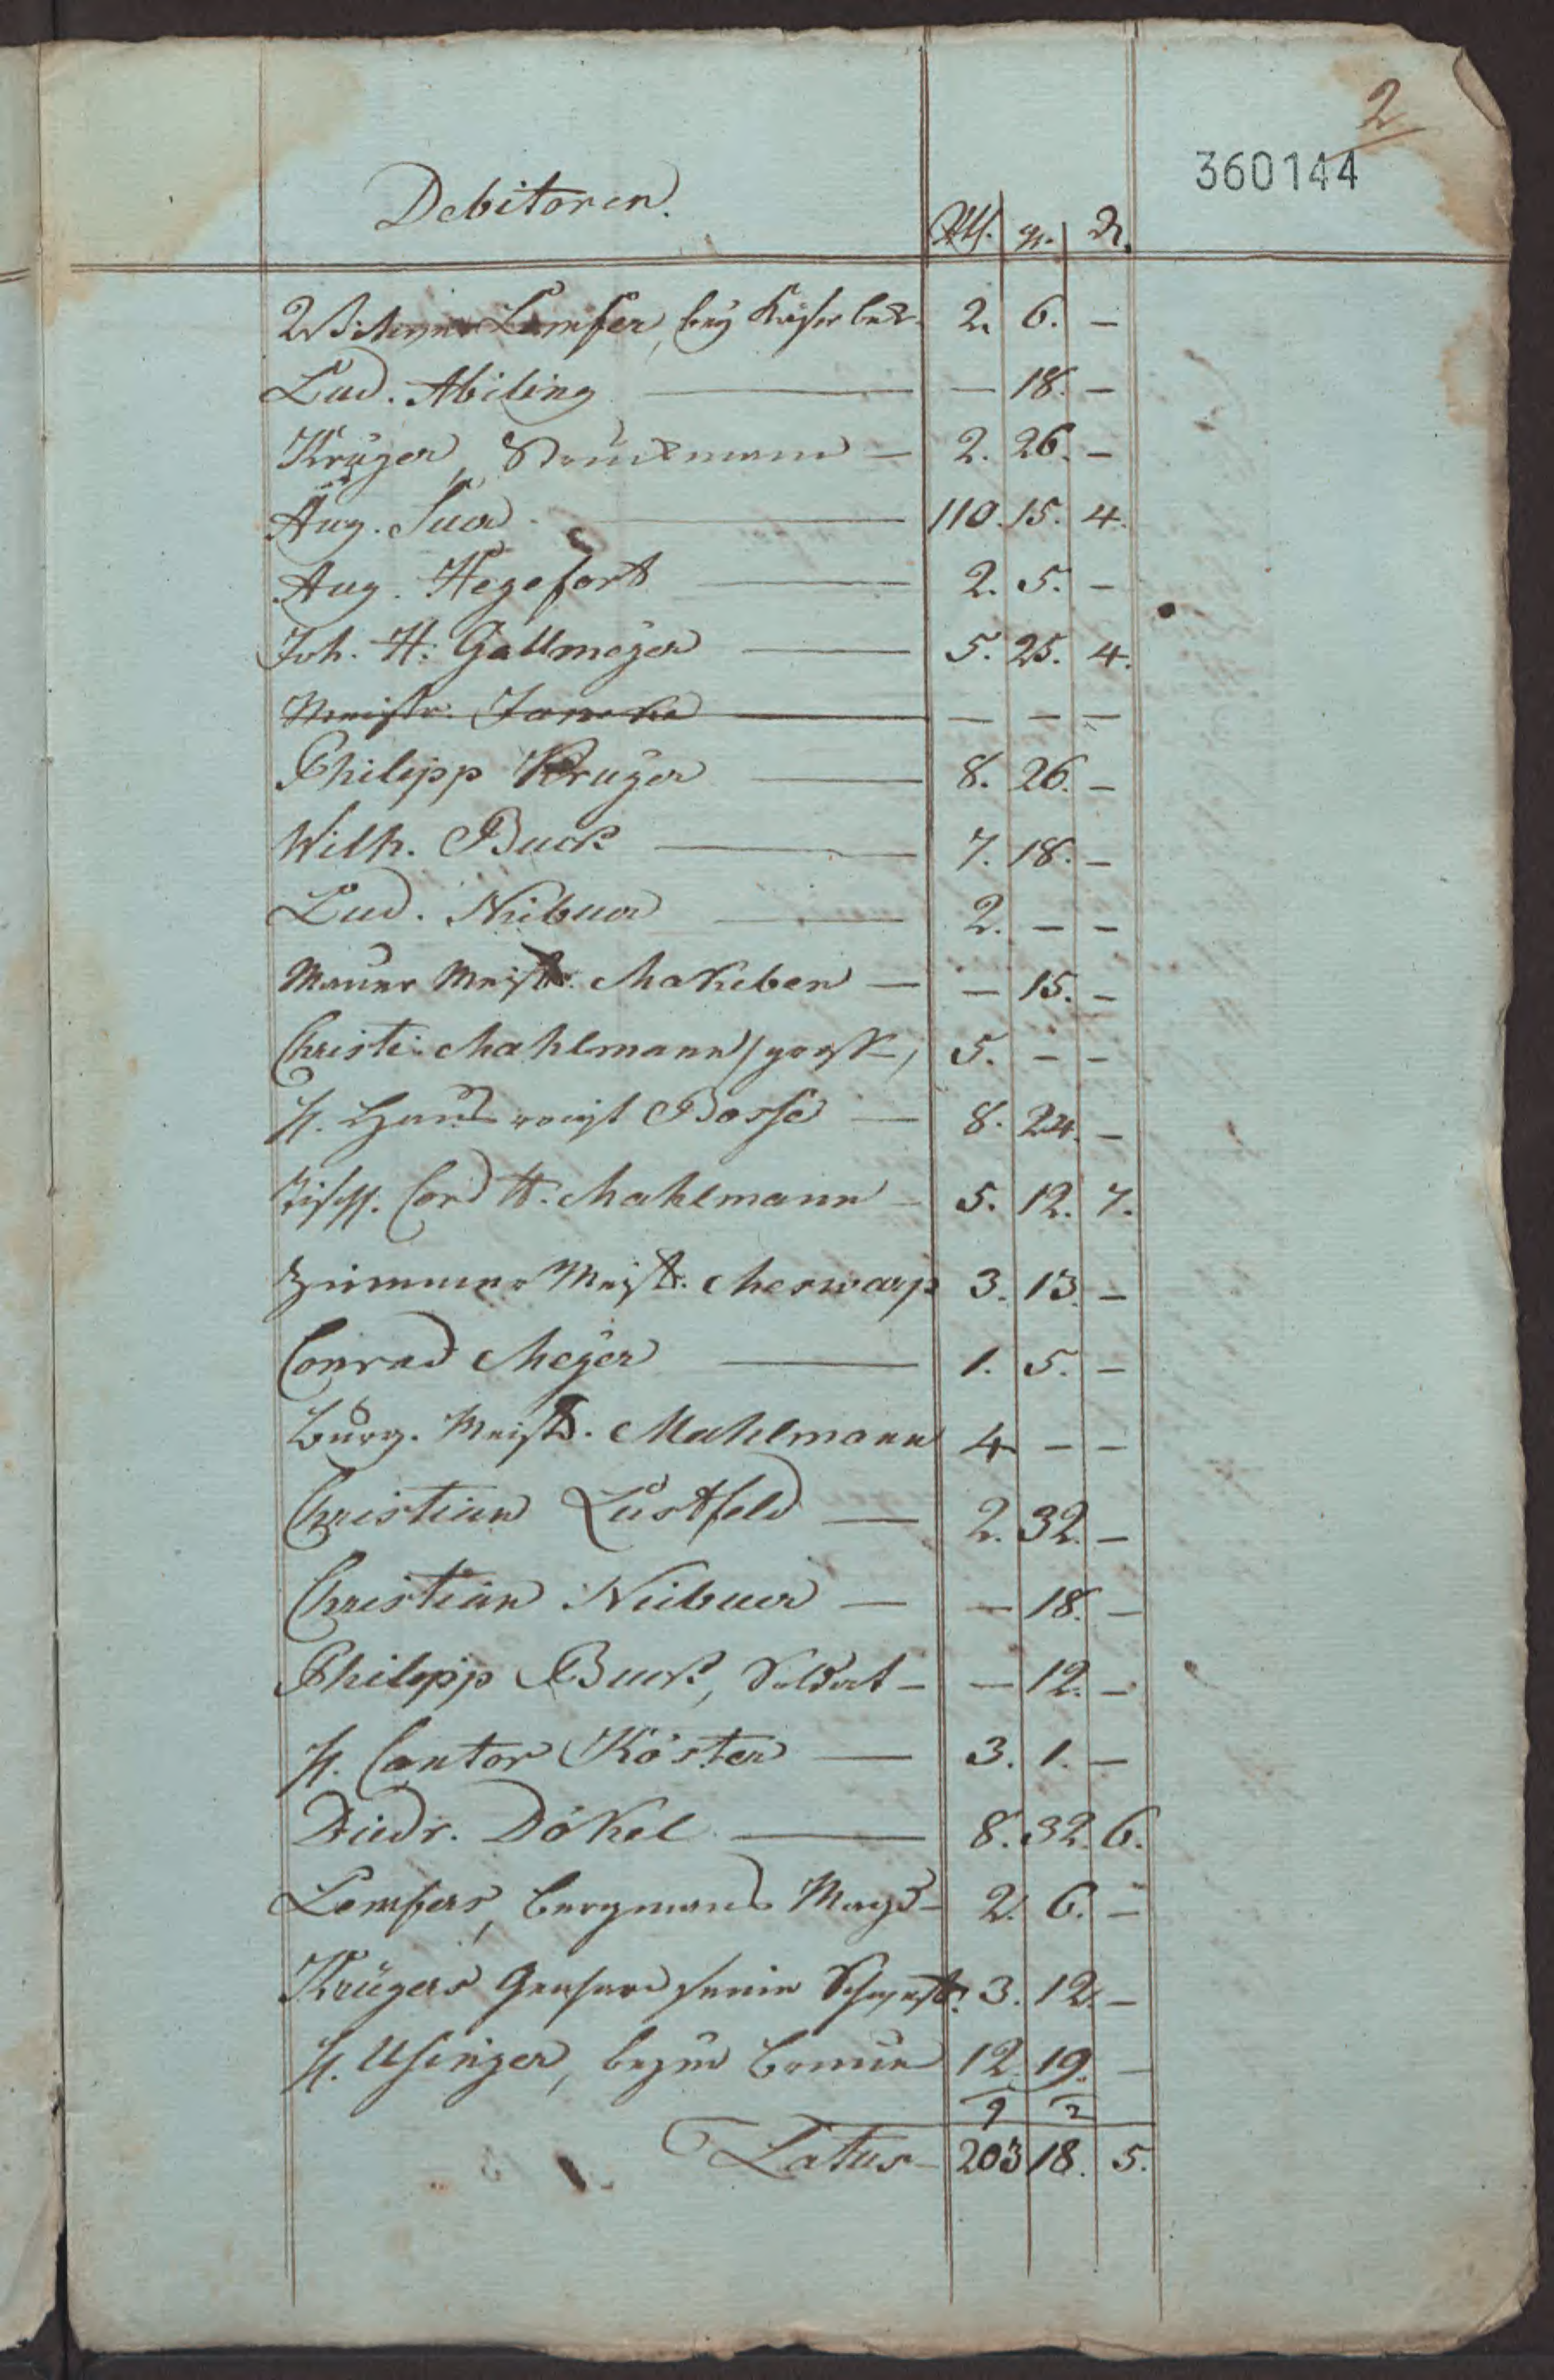 2
360144
Debitoren.
Rth. gr. ₰.
Lemker, bey 2. 6. —
Lud. Abiling — — 18. —
Krüger, — 2. 26. —
Aug. Suer — 110. 15. 4.
Aug. Hegefort — 2. 5. —
Joh. H. Gallmeyer — 5. 25. 4.
Meistr. Janeke — — — —
Philipp Krüger — 8. 26. —
Wilh. Buck — 7. 18. —
Lud. Niibuer — 2. — —
Mauer Meistr. Makeben — — 15. —
Christi. Mahlmann 5. — —
H. Hausvoigt Bosse — 8. 24. —
Tischl. Cord H. Mahlmann — 5. 12. 7.
Zimmer Meistr. Meswarp 3. 13. —
Conrad Meyer — 1. 5. —
Burg. Meistr. Mahlmann 4 — —
Christian Lustfeld — 2. 32. —
Christian Niibuer — — 18. —
Philipp Buck, Soldat — — 12. —
H. Cantor Köster — 3. 1. —
Diedr. Dökel — 8. 32. 6.
Lemkers, Bergmans Magd — 2. 6. —
Krügers 3. 12. —
H. Usinger, beym 12. 19. —
9 2
Latus — 203 18. 5.